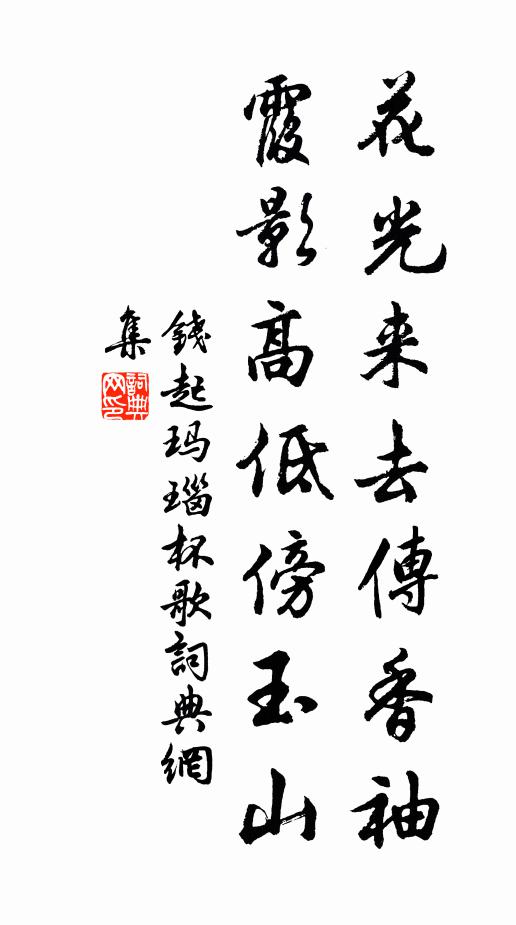 花光来去傳香袖
霞影高低傍玉山
錢起玛瑙杯歌詞典網
集
詞典网印